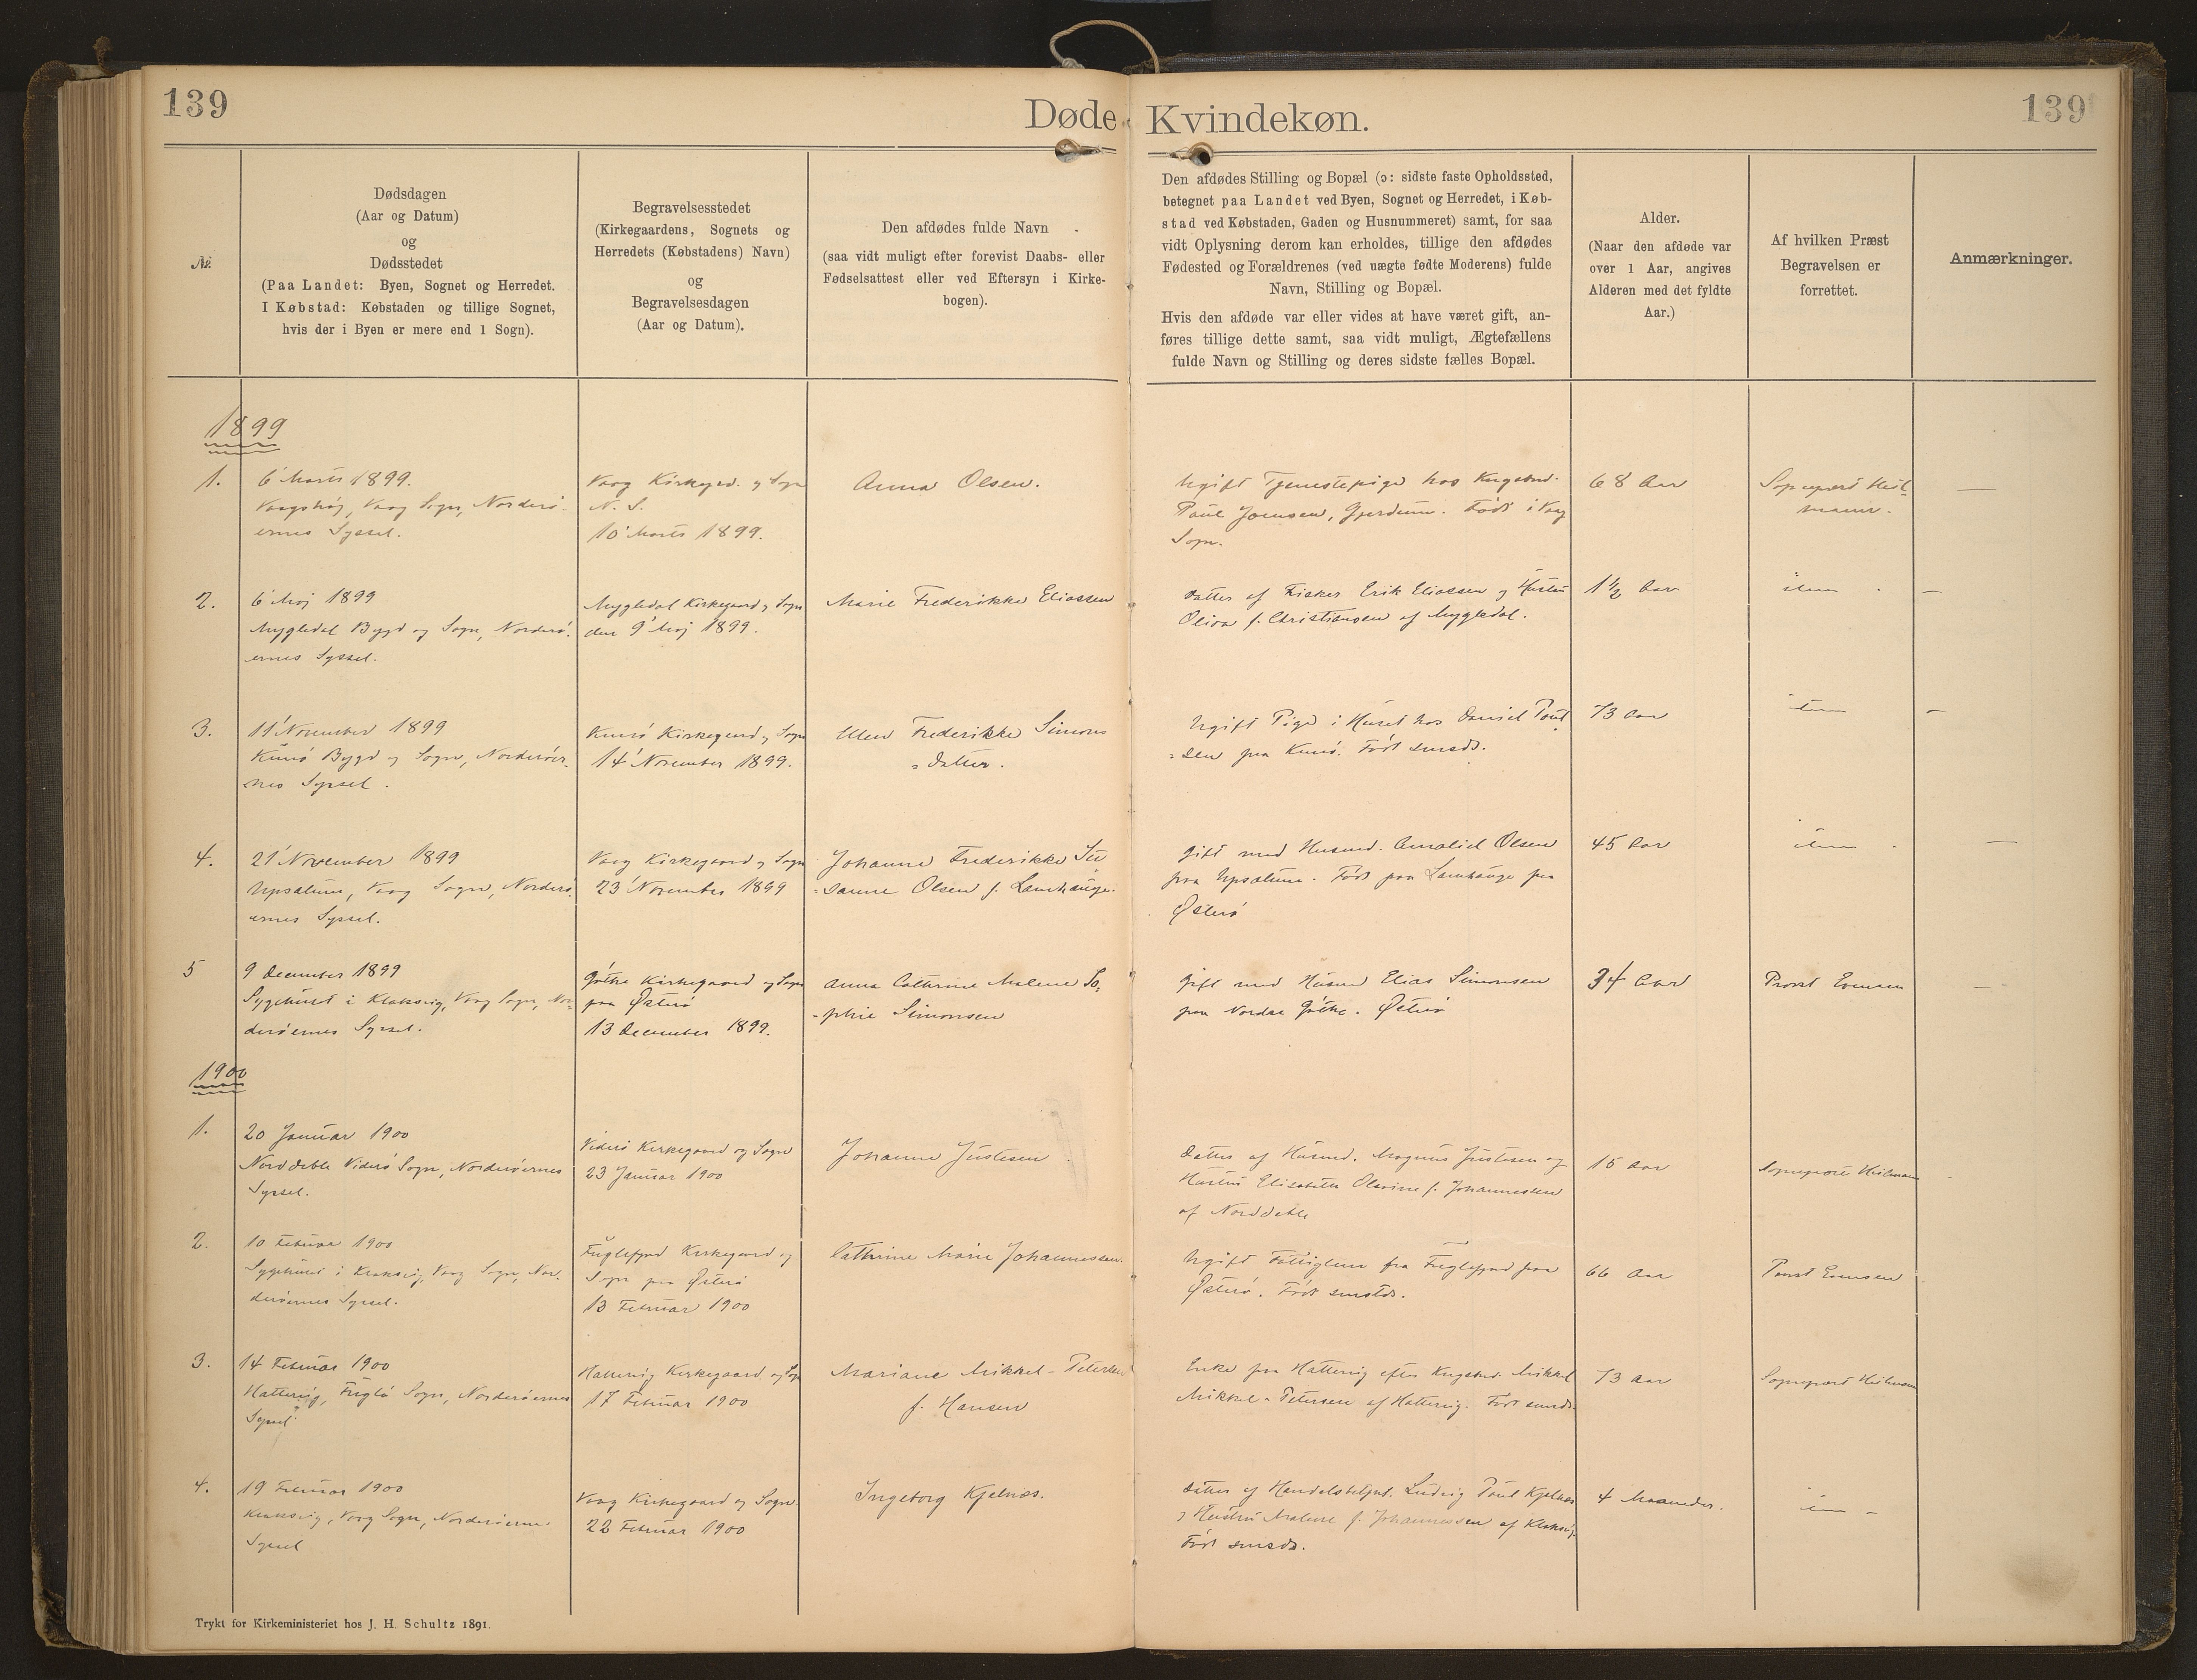 139
Døde Kvindekøn.
139
№.
Dødsdagen
(Aar og Datum)
og
Dødsstedet
(Paa Landet: Byen, Sognet og Herredet.
I Købstad: Købstaden og tillige Sognet,
hvis der i Byen er mere end 1 Sogn).
Begravelsesstedet
(Kirkegaardens, Sognets og
Herredets (Købstadens) Navn)
og
Begravelsesdagen
(Aar og Datum).
Den afdødes fulde Navn
(saa vidt muligt efter forevist Daabs- eller
Fødselsattest eller ved Eftersyn i Kirke-
bogen).
Den afdødes Stilling og Bopæl (ɔ: sidste faste Opholdssted,
betegnet paa Landet ved Byen, Sognet og Herredet, i Køb-
stad ved Købstaden, Gaden og Husnummeret) samt, for saa
vidt Oplysning derom kan erholdes, tillige den afdødes
Fødested og Forældrenes (ved uægte fødte Moderens) fulde
Navn, Stilling og Bopæl.
Hvis den afdøde var eller vides at have været gift, an-
føres tillige dette samt, saa vidt muligt, Ægtefællens
fulde Navn og Stilling og deres sidste fælles Bopæl.
Alder.
(Naar den afdøde var
over 1 Aar, angives
Alderen med det fyldte
Aar.)
Af hvilken Præst
Begravelsen er
forrettet.
Anmærkninger.
1899
1.
6' Marts 1899.
Vaag Sogn, Norderö-
ernes Syssel.
Vaag Kirkegrd. og Sogn
N. S.
10' Marts 1899.
Anna Olsen.
Ugift Tjenestepige hos Kngsbnd.
Poul Joensen, Gjerdum. Födt i Vaag
Sogn.
68 Aar
—
2.
6' Maj 1899
Mygledal Bygd og Sogn, Norderö-
ernes Syssel.
Mygledal Kirkegaard og Sogn
den 9' Maj 1899.
Marie Frederikke Eliassen
Datter af Fisker Erik Eliassen og Hustru
Oliva f. Christiansen af Mygledal.
1½ Aar
item
—
3.
11' November 1899
Kunö Bygd og Sogn, Norderöer-
nes Syssel.
Kunö Kirkegaard og Sogn
14' November 1899.
Ellen Frederikke Simons
=datter.
Ugift Pige i Huset hos Daniel Poul
=sen paa Kunö. Födt smsds.
73 Aar
item
—
4.
21' November 1899
Upsalum, Vaag Sogn, Norderö-
ernes Syssel.
Vaag Kirkegaard og Sogn
23' November 1899
Johanne Frederikke Su
=sanne Olsen f. Lamhauge.
Gift med Husmd. Olsen
paa Upsalum. Födt paa Lamhauge paa
Österö
45 Aar
item
—
5
9 December 1899
Sygehuset i Klaksvig, Vaag Sogn, Nor-
deröernes Syssel.
Göthe Kirkegaard og Sogn
paa Österö
13 December 1899.
Anna Cathrine Malene So-
=phie Simonsen
Gift med Husmd Elias Simonsen
paa Nordre Göthe. Österö
34 Aar
Provst Evensen
—
1900
1.
20 Januar 1900
Norddeble Viderö Sogn, Norderöernes
Syssel.
Viderö Kirkegaard og Sogn
23 Januar 1900
Johanne Justesen
Datter af Husmd. Magnus Justesen og
Hustru Elisabeth f. Johannessen
af Norddeble
15 Aar
2.
10 Februar 1900
Sygehuset i Klaksvig, Vaag Sogn, Nor-
deröernes Syssel.
Fuglefjord Kirkegaard og
Sogn paa Österö
13 Februar 1900
Cathrine Marie Johannessen
Ugift Fattiglem fra Fuglefjord paa
Österö. Födt smstds.
66 Aar
Provst Evensen
3.
14 Februar 1900
Hattervig, Fuglö Sogn, Norderöernes
Syssel
Hattervig Kirkegaard og Sogn
17 Februar 1900
Mariane Mikkel-Petersen
f. Hansen
Enke paa Hattervig efter Kngsbnd. Mikkel
Mikkel-Petersen af Hattervig. Födt smsds.
73 Aar
4.
19 Februar 1900
Klaksvig, Vaag Sogn, Norderöerne.
Syssel
Vaag Kirkegaard og Sogn.
22 Februar 1900
Ingeborg Kjelnæs.
Datter af Ludvig Poul Kjelnæs
og Hustru Malene f. Johannessen af Klaksvig.
Födt smsds.
4 Maaneder.
Trykt for Kirkeministeriet hos J. H. Schultz 1891.